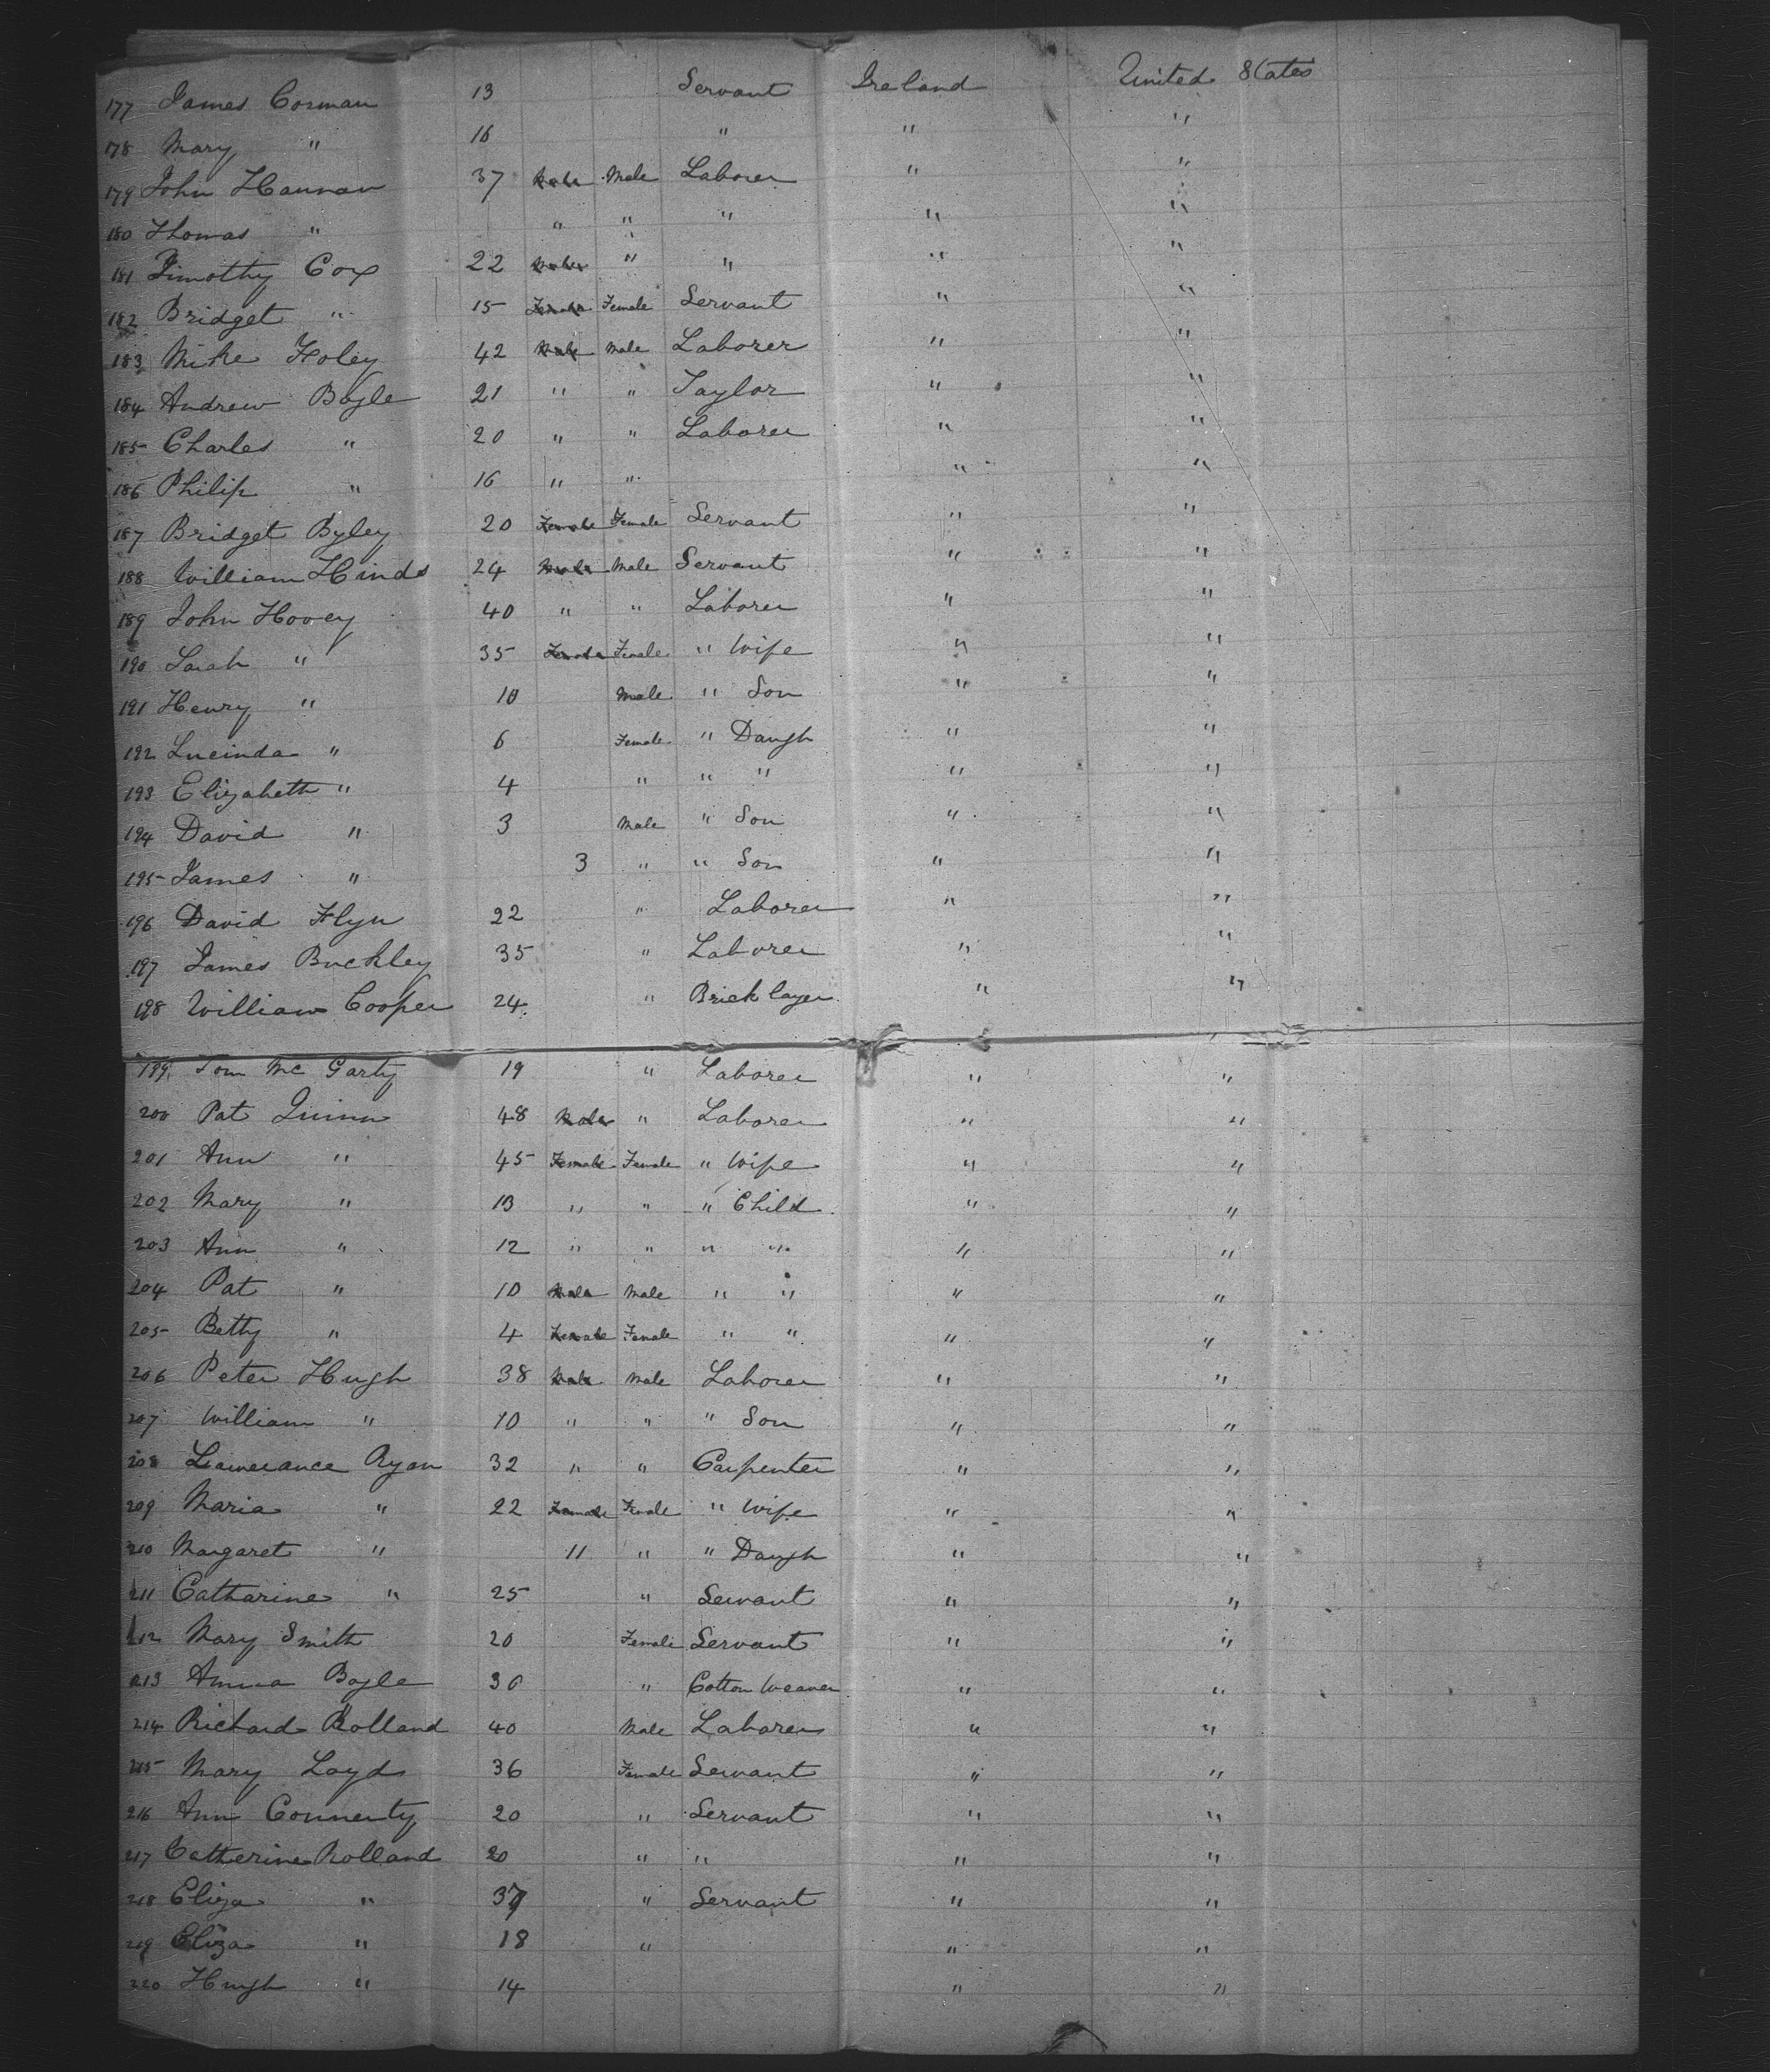 177 James Corman 13 Servant Ireland United States
178 Mary " 16 " " "
179 John Hannan 37 Male Male Laborer " "
180 Thomas " " " " " "
181 Timothy Cox 22 Male " " " "
182 Bridget " 15 Female Female Servant " "
183 Mike Foley 42 Male Male Laborer " "
184 Andrew Bogle 21 " " Taylor " "
185 Charles " 20 " " Laborer " "
186 Philip " 16 " " " "
187 Bridget Byley 20 Female Female Servant " "
188 William Hinds 24 Male Male Servant " "
189 John Hovey 40 " " Laborer " "
190 Sarah " 35 Female Female " Wife " "
191 Henry " 10 Male " Son " "
192 Lucinda " 6 Female " Daugh " "
193 Elizabeth " 4 " " " " "
194 David " 3 Male " Son " "
195 James " 3 " " Son " "
196 David Flyn 22 " Laborer " "
197 James Buckley 35 " Laborer " "
198 William Cooper 24 " Brick layer " "
199 Tom Mc Garty 19 " Laborer " "
200 Pat Quinn 48 Male " Laborer " "
201 Ann " 45 Female Female " Wife " "
202 Mary " 13 " " " Child " "
203 Ann " 12 " " " " " "
204 Pat " 10 Male Male " " " "
205 Betty " 4 Female Female " " " "
206 Peter Hugh 38 Male Male Laborer " "
207 William " 10 " " " Son " "
208 Lawerance Ryan 32 " " Carpenter " "
209 Maria " 22 Female Female " Wife " "
210 Margaret " 11 " " Daugh " "
211 Catharine " 25 " Servant " "
212 Mary Smith 20 Female Servant " "
213 Anna Bogle 30 " Cotton Weaver " "
214 Richard Rolland 40 Male Laborer " "
215 Mary Loyd 36 Female Servant " "
216 Ann Connerty 20 " Servant " "
217 Catherine Rolland 20 " " " "
218 Eliza " 37 " Servant " "
219 Eliza " 18 " " "
220 Hugh " 14 " "